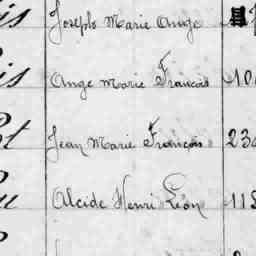 is Joseph Marie Ange
is Ange Marie François 10
ot Jean Marie François 230
u Alcide Henri Léon 115